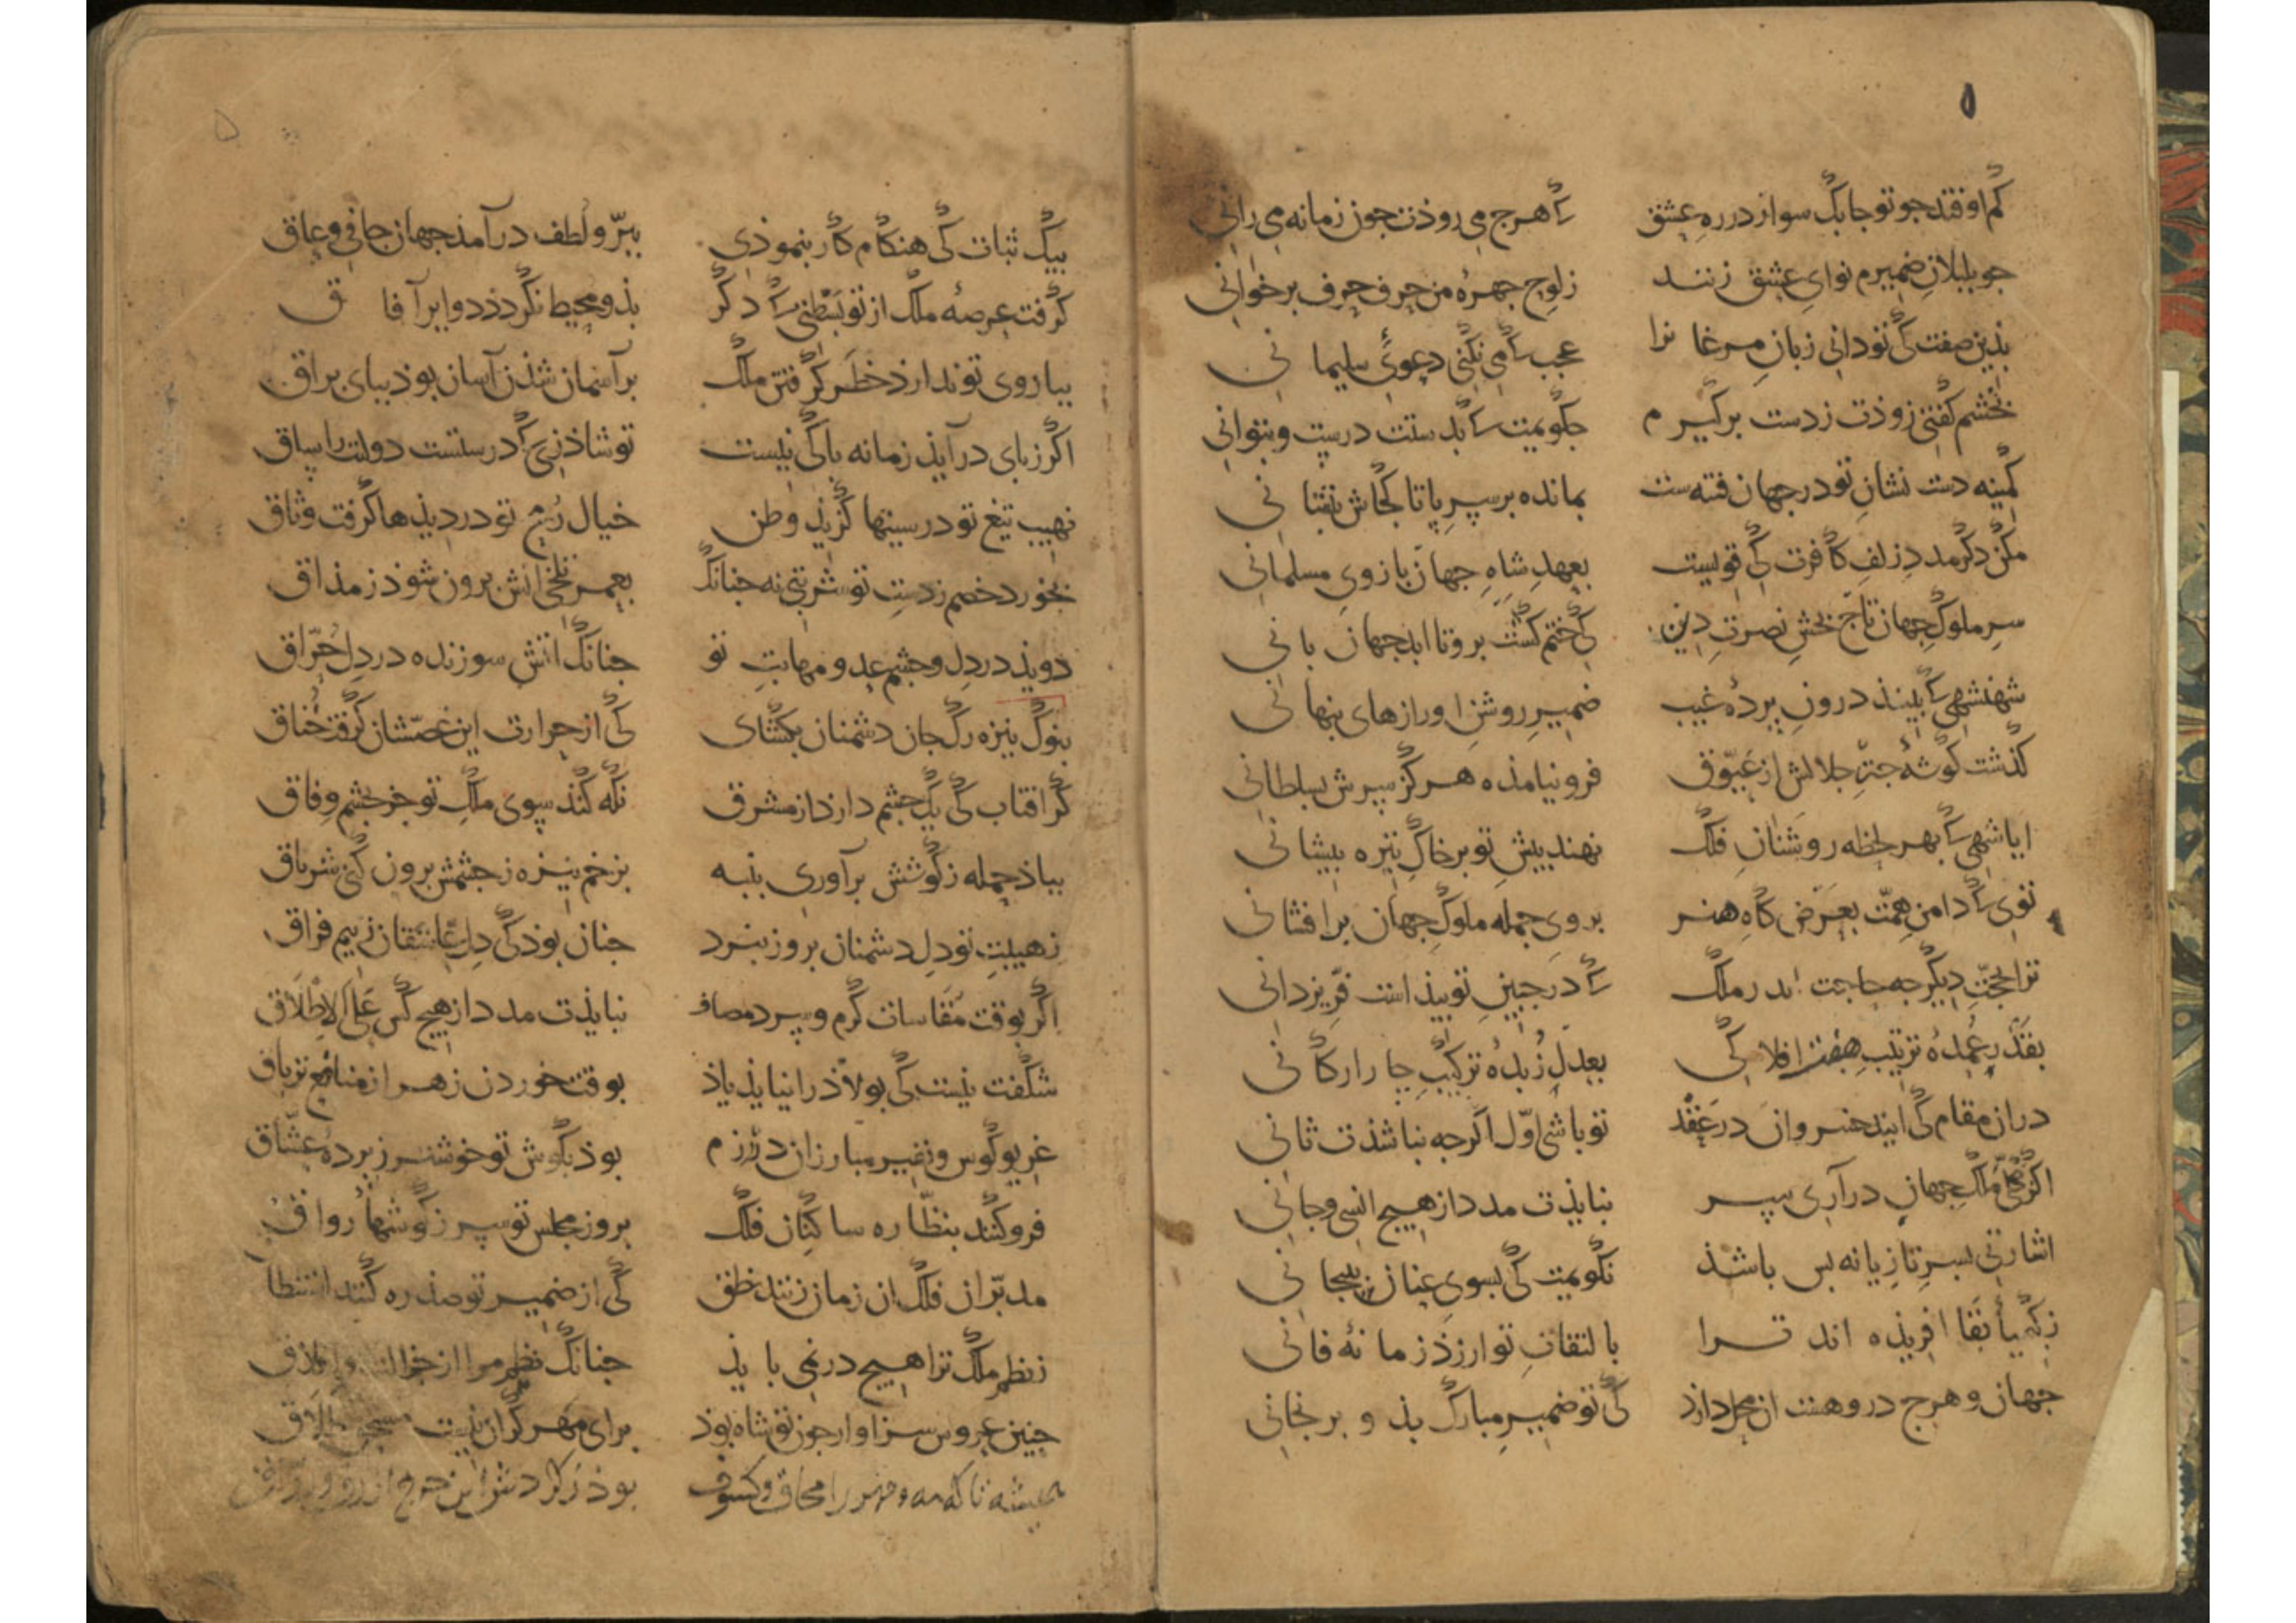 ۵
کم اوفتد جو تو جابک سوار در ره عشق کآ هرج می روذت جون زمانه می رانی
جو بلبلان ضمیرم نوای عشق زنند ز لوح جهره من حرف حرف برخوانی
بذین صفت کی تو دانی زبان مرغا نرا عجب کآ می نکنی دعوی سلیما نی
بخشم کفتی زوذت ز دست برکیر م جکویمت کآ بدستت درست و بتوانی
کمینه دست نشان تو در جهان فتنه ست بمانده بر سر پا تا کجاش بنشا نی
مکن دکر مدد زلف کافرت کی قویست بعهد شاه جهان بازوی مسلمانی
سر ملوک جهان تاج بخش نصرت دین کی ختم کشت برو تا ابد جهان با نی
شهنشهی کآ ببیند درون پرده غیب ضمیر روشن او رازهای پنها نی
کذشت کوشه جتر جلالش از عیوق فرو نیامذه هرکز سرش بسلطانی
ایا شهی کآ بهر لحظه روشنان فلک نهند پیش تو بر خاک تیره پیشا نی
توی کآ دامن همت بعرض کاه هنر بروی جمله ملوک جهان برافشا نی
ترا بحجت دیکر جه حاجت اندر ملک کآ در جبین تو بیذاست فر یزدانی
بقدر عمده ترتیب هفت افلا کی بعدل زبده ترکیب جا رارکا نی
دران مقام کی ایند خسروان در عقد تو باشی اول اکرجه نباشذت ثانی
اکر ملک جهان درآری سر نبایذت مدد از هیچ انسی و جانی
اشارتی بسر تازیانه بس باشذ نکویمت کی بسوی عنان بیجا نی
ز کیمیا بقا افریذه اند ترا با لتفات تو ارزذ زما نه فانی
جهان و هرج دروهست ان محل دارذ کی تو ضمیر مبارک بذ و برنجانی
۵
بیک ثبات کی هنکام کار بنموذی ببر و لطف درآمد جهان جافی و عاق
کرفت عرصه ملک از تو بسطتی کآ دکر بذو محیط نکردذ دوایر آفا ق
بیاروی تو ندارذ خطر کرفتن ملک برآسمان شذن آسان بوذ ببای براق
اکر ز بای درآیذ زمانه باکی نیست تو شاذ زی کآ درستست دولت را ساق
نهیب تیغ تو در سینها کزیذ وطن خیال رمح تو در دیذها کرفت وثاق
بخورد خصم ز دست تو شربتی نه جنانک بعمر تلخی انش برون شوذ ز مذاق
دویذ در دل و جشم عدو مهابت تو جنانک اتش سوزنده در دل حراق
بنوک نیزه رک جان دشمنان بکشای کی از حرارت این غصشان کرفت خناق
کر افتاب کی یک جشم دارد از مشرق نکه کند سوی ملک تو جز بجشم وفاق
بباذ حمله ز کوشش برآوری بنبه بزخم نیزه ز جشمش برون کنی شرناق
ز هیبت تو دل دشمنان بروز نبرد جنان بوذ کی دل عاشقان ز بیم فراق
اکر بوقت مقاسات کرم و سرد مصاف نبایذت مدد از هیچ کس علی الاطلاق
شکفت نیست کی بولاذ را نیایذ یاذ بوقت خوردن زهر از منافع تریاق
غریو کوس و نفیر مبارزان در رزم بوذ بکوش تو خوشتر ز پرده عشاق
فرو کنند بنظاره ساکنان فلک بروز مجلس تو سر ز کوشهاء رواق
مدبران فلک ان زمان زنند نطق کی از ضمیر تو صذ ره کنند استنطا
ز نظم ملک ترا هیچ در نمی با یذ جنانک نظم مرا از جزالت و اغلاق
جنین عروس سزاوار جون تو شاه بوذ برای مهر کران نیست مستحق طلاق
همیشه تا که مه و مهر را محاق و کسوف بوذ ز کردش این جرخ